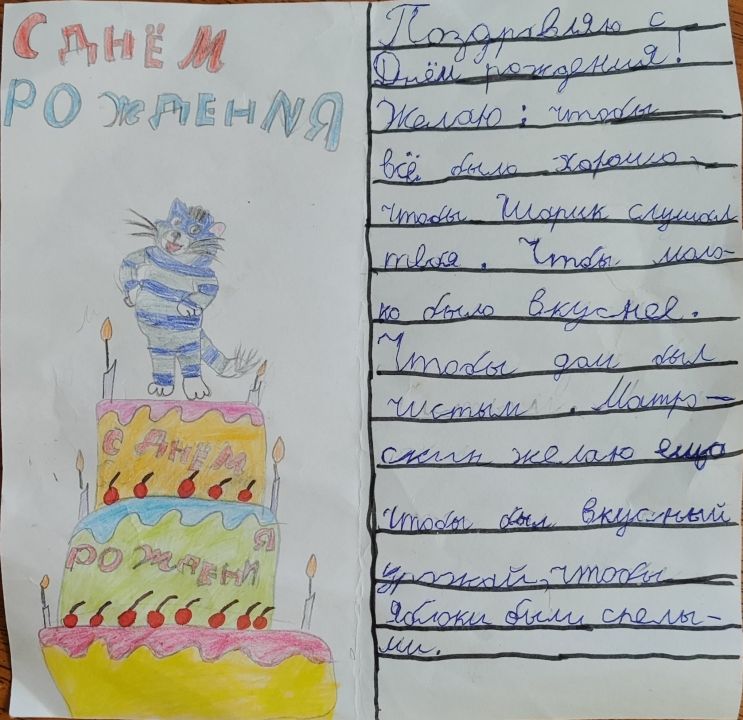 С ДНЁМ
РОЖДЕНИЯ
С ДНЁМ
РОЖДЕНИЯ
Поздравляю с
Днём рождения!
Желаю: чтобы
всё было хорошо.
Чтобы Шарик слушал
тебя. Чтобы моло-
ко было вкусное.
Чтобы дом был
чистым. Матро-
скин желаю ещо
чтобы был вкусный
урожай, чтобы
яблоки были спелы-
ми.